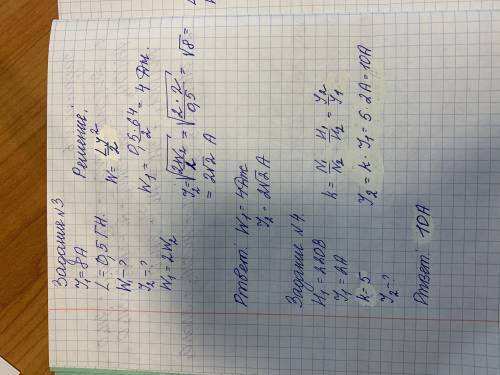 Задание №3
I₁ = 8A
L = 0,5 ГН.
W₁ - ?
I₂ = ?
W₁ = 2W₂
Решение:
W = LI²/2
W₁ = 0,5·64/2 = 4 Дж.
= √(2·2/0,5) = √8 =
= 2√2 A
Ответ: W₁ = 4Дж
I₂ = 2√2 A
Задание №4.
U₁ = 220В
I₁ = 2A
k = 5
I₂ = ?
k = N₁/N₂ = U₁/U₂ = I₂/I₁
I₂ = k · I₁ = 5 · 2A = 10A
Ответ: 10A